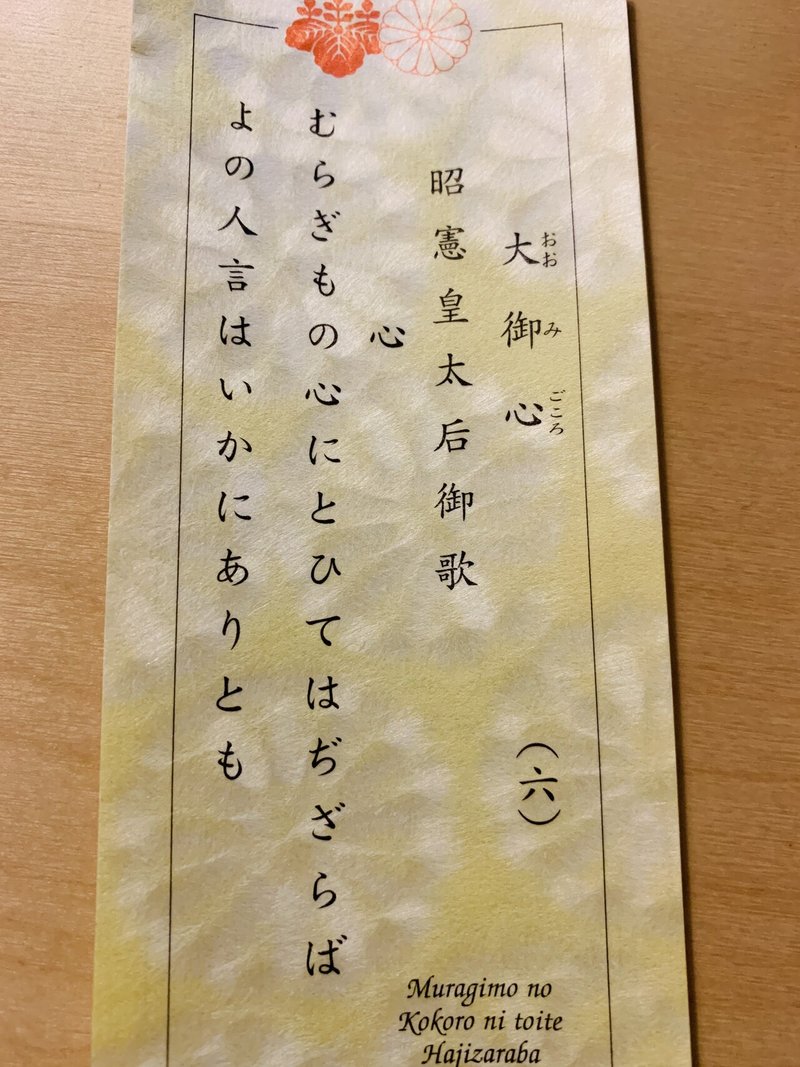 大御心 （六）
おおみごころ
昭憲皇太后御歌
心
むらぎもの心にとひてはぢざらば
よの人言はいかにありとも
Muragimo no
Kokoro ni toite
Hajizaraba